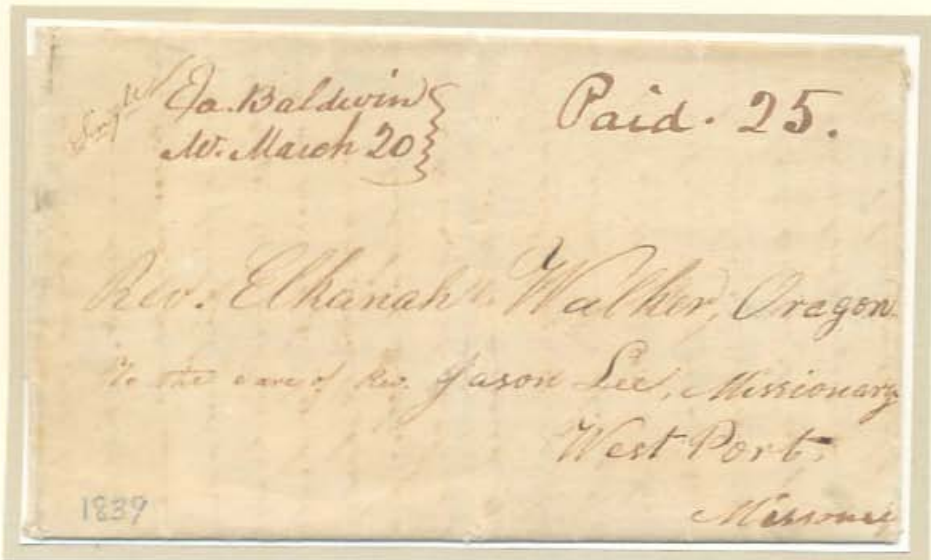 Single
Ea. Baldwin
Me. March 20
Paid. 25.
Rev. Elkanah Walker, Oragon.
To the care of Rev. Jason Lee, Missionary
West Port.
Missouri
1839